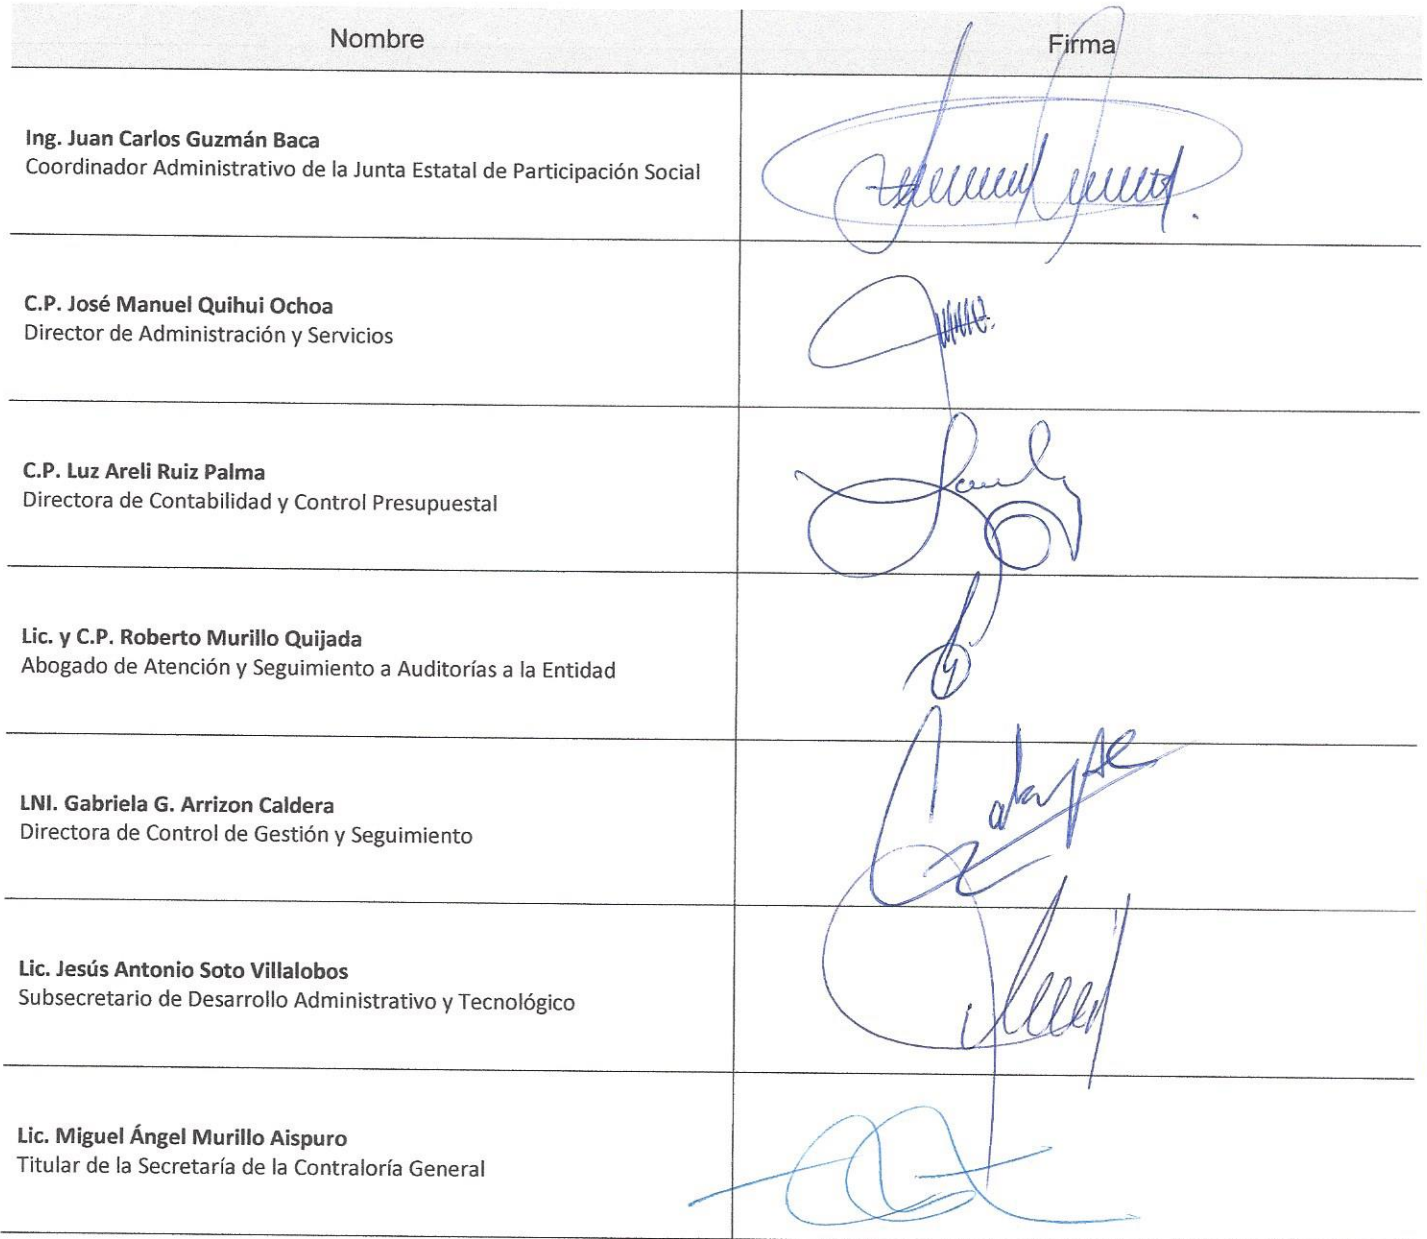 Nombre
Firma
Ing. Juan Carlos Guzmán Baca
Coordinador Administrativo de la Junta Estatal de Participación Social
C.P. José Manuel Quihui Ochoa
Director de Administración y Servicios
C.P. Luz Areli Ruiz Palma
Directora de Contabilidad y Control Presupuestal
Lic. y C.P. Roberto Murillo Quijada
Abogado de Atención y Seguimiento a Auditorías a la Entidad
LNI. Gabriela G. Arrizon Caldera
Directora de Control de Gestión y Seguimiento
Lic. Jesús Antonio Soto Villalobos
Subsecretario de Desarrollo Administrativo y Tecnológico
Lic. Miguel Ángel Murillo Aispuro
Titular de la Secretaría de la Contraloría General